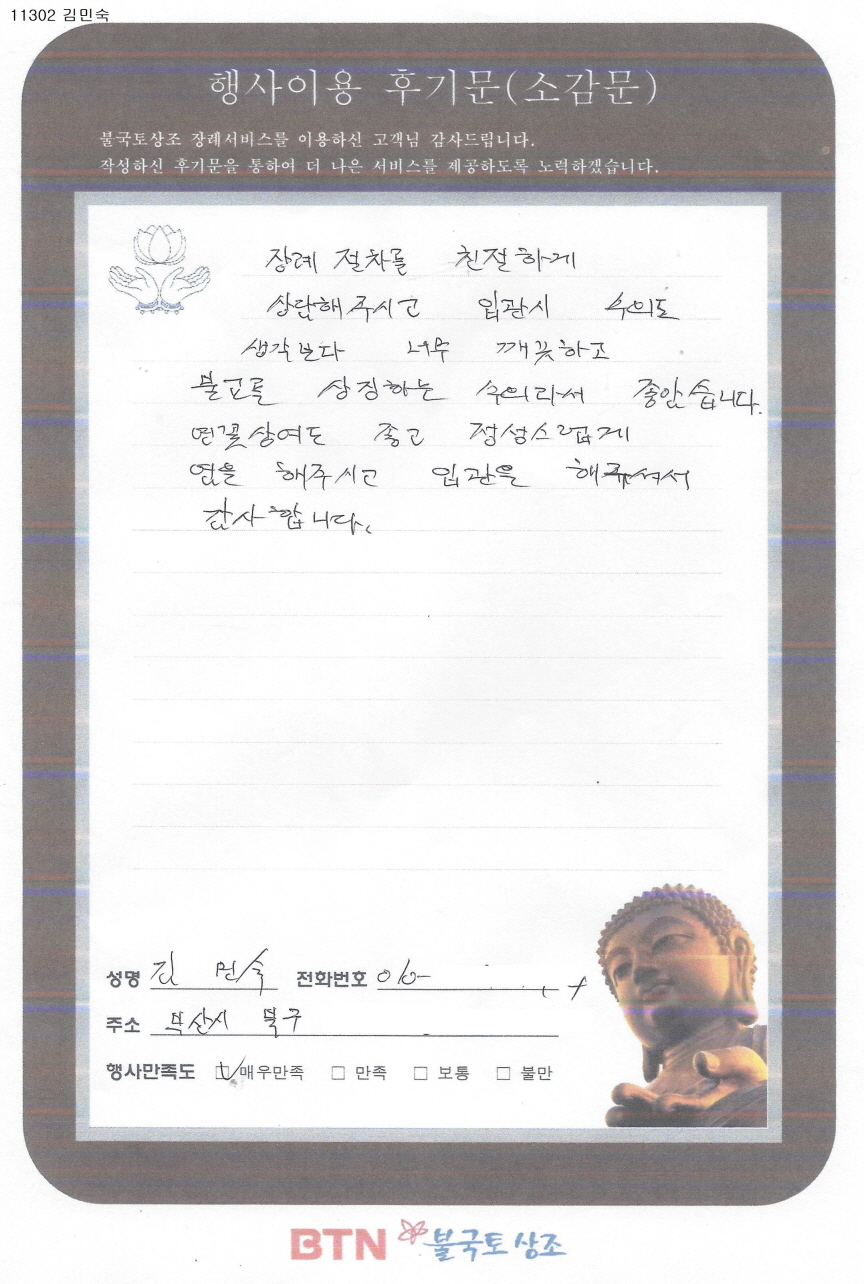 11302 김민숙
행사이용 후기문(소감문)
불국토상조 장례서비스를 이용하신 고객님 감사드립니다.
작성하신 후기문을 통하여 더 나은 서비스를 제공하도록 노력하겠습니다.
장례 절차를 친절하게
상담해주시고 입관시 수의도
생각보다 너무 깨끗하고
불교를 상징하는 수의라서 좋았습니다.
연꽃상여도 좋고 정성스럽게
염을 해주시고 입관을 해주셔서
감사합니다.
성명 김 민숙 전화번호 010-
주소 부산시 북구
행사만족도 ☑매우만족 □ 만족 □ 보통 □ 불만
BTN 불국토상조